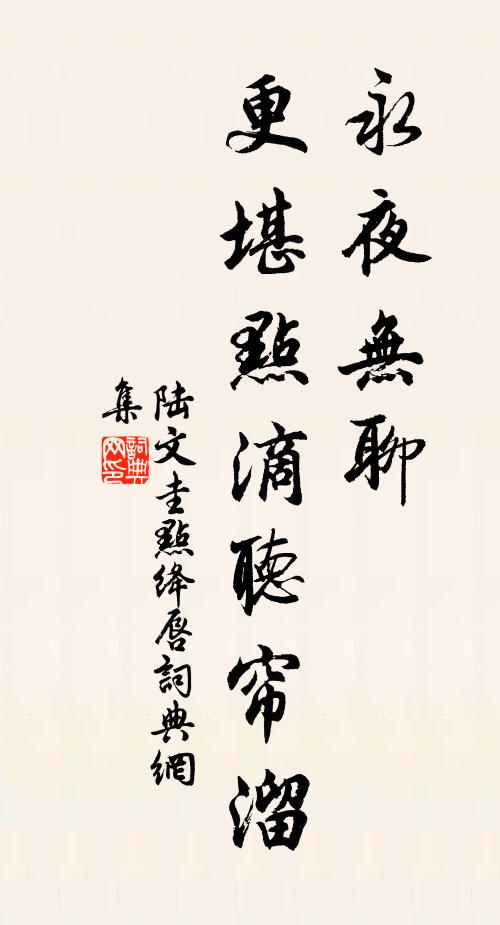 永夜無聊
更堪點滴聽帘溜
陆文圭點绛唇詞典網
集
詞典网印